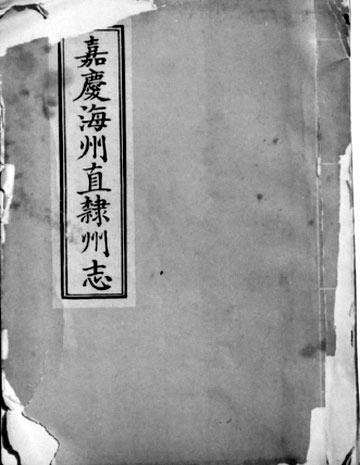 嘉慶海州直隸州志